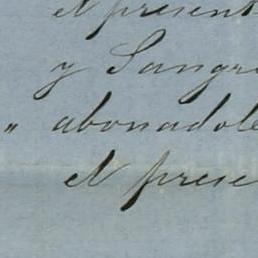 el present
y Sangre
" abonadole
el prese